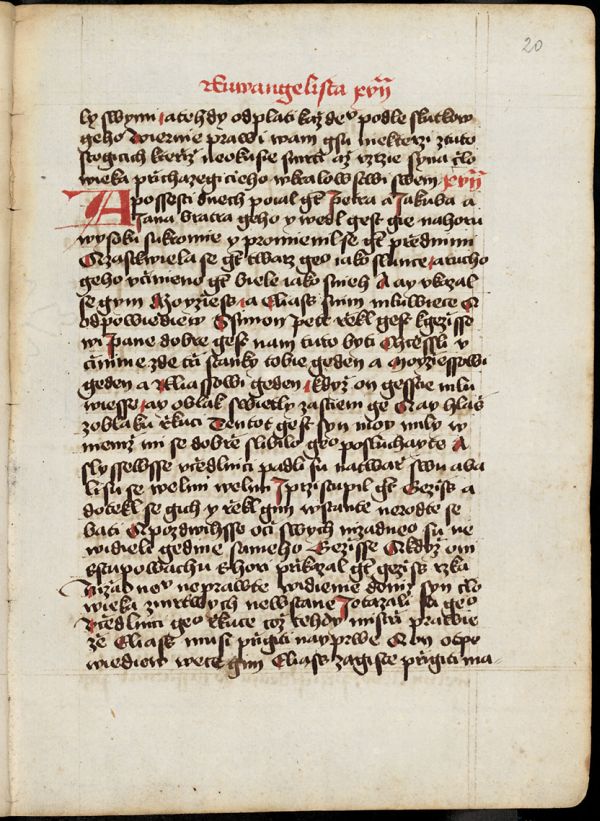 20
Euwangelista xvij
ly swymi a tehdy odplati každeᵒ podle skutkow
geho Wiernie prawi wam gsu niekterzi z tuto
stogicich kteržž neokusie smrti až vzrzie syna čło
wieka přichazegicieho w kralowstwi swem xvij
A po ssesti dnech poial gt Petra a Jakuba a
Jana bratra geho y wedl gest gie na horu
wysoku sukromie y promienil se gt przed nimi
A zastkwiela se gt twarz geo iako slunce a rucho
geho vcinieno gt biele iako snieh A ay vkazal
se gym Moyziess a Eliass s nim mluwiece A
odpowiediew Ssimon Petr rzekl gest k gezisso
wi Pane dobre gest nam tuto byti Chcessli y
cinime zde trzi stanky tobie geden a Moyziessowi
geden a Eliassowi geden kdyz on gesscie mlu
wiesse ay oblak swietly zastienie ge A ay hlas
z oblaku řkuci Tentot gest syn moy mily w
niemz mi se dobrze slibilo geo posluchayte A
slyssewsse včedlnici padli su na twarz swu a ba
li su se welmi welmi J przistupil gt Gezis a
dotekl se gich y řekl gim wstante nerodte se
bati A pozdwihsse oci swych nizadneo su ne
widieli gedine sameho Gezisse A kdyz oni
sstupowachu s hori přikazal gt gezis rzka
Nizadneᵒ neprawte widienie doniz syn čło
wieka z mrtwych newstane J otazali su geo
Včedlnici geo rkuce coz tehdy mistrzi prawie
ze Eliass musi przigiti nayprwe A on otpo
wiediew wece gim Eliass zagiste przigiti ma